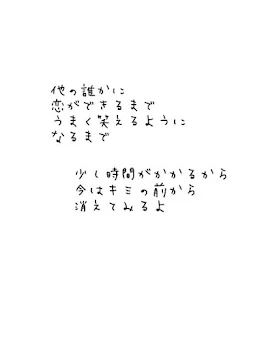 他の誰かに
恋ができるまで
うまく笑えるように
なるまで
少し時間がかかるから
今はキミの前から
消えてみるよ